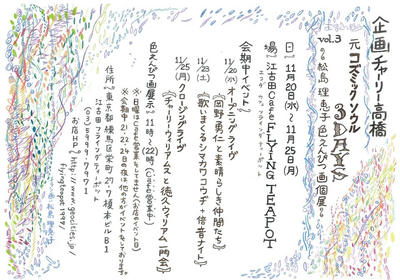 企画 チャーリー高橋
元 コズミックソウル 3DAYS
vol.3 松島 理恵子 色えんぴつ画個展
日 11月20日(水)~11月25日(月)
場 江古田Cafe FLYING TEAPOT
エコダ カフェ フライング ティーポット
会期中イベント
11/20(水) オープニングライヴ
《岡野勇仁と素晴らしき仲間たち》
11/23(土)
《歌いまくるシマカワコウヂ+倍音ナイト》
11/25(月) クロージングライヴ
《チャーリー・ウィリアムスと徳久ウィリアム一門会》
色えんぴつ画展示 11時~(22時)(Cafe営業中)
※日曜は営業をしておりません(お店のイベント日)
※会期中21,22,24日の夜は他の方がイベントをしております。
住所 東京都練馬区栄町27-7 榎本ビルB1
江古田 フライングティーポット
(03)5999-7971
お店HP http://www.geocities.jp/
flyingteapot1997/